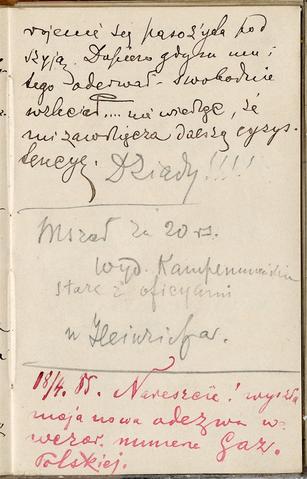 rojenie się pasożyta pod
szyją. Dopiero gdym mu i
tego oderwał - swobodnie
wzleciał.... nie wiedząc, że
mi zawdzięcza dalszą egzys-
tencyę. Dziady!!!!
Mszał za 20 rs.
wyd.
stare z oficyami
u Heinricha.
18/4. 85. Nareszcie! wyszła
moja nowa odezwa w
wczor. numerze Gaz.
Polskiej.